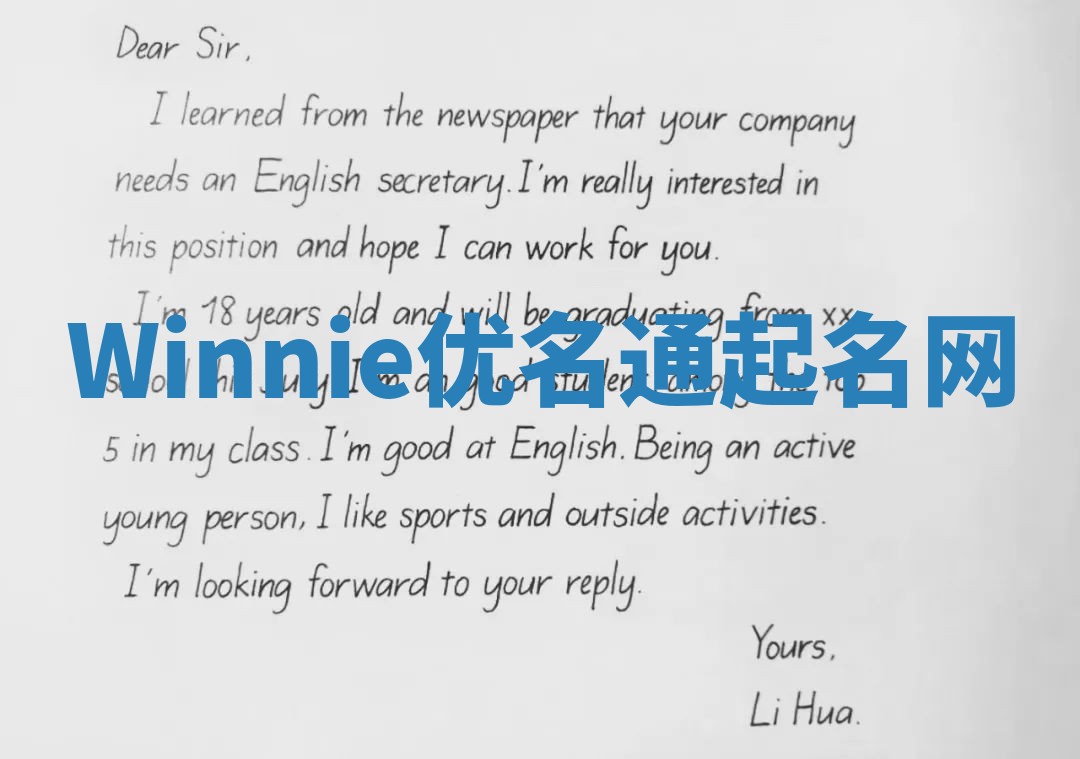 Dear Sir,
I learned from the newspaper that your company
needs an English secretary. I'm really interested in
this position and hope I can work for you.
I'm 18 years old and will be graduating from xx
Winnie优名通起名网
school this July. I'm an good student among the top
5 in my class. I'm good at English. Being an active
young person, I like sports and outside activities.
I'm looking forward to your reply.
Yours,
Li Hua.